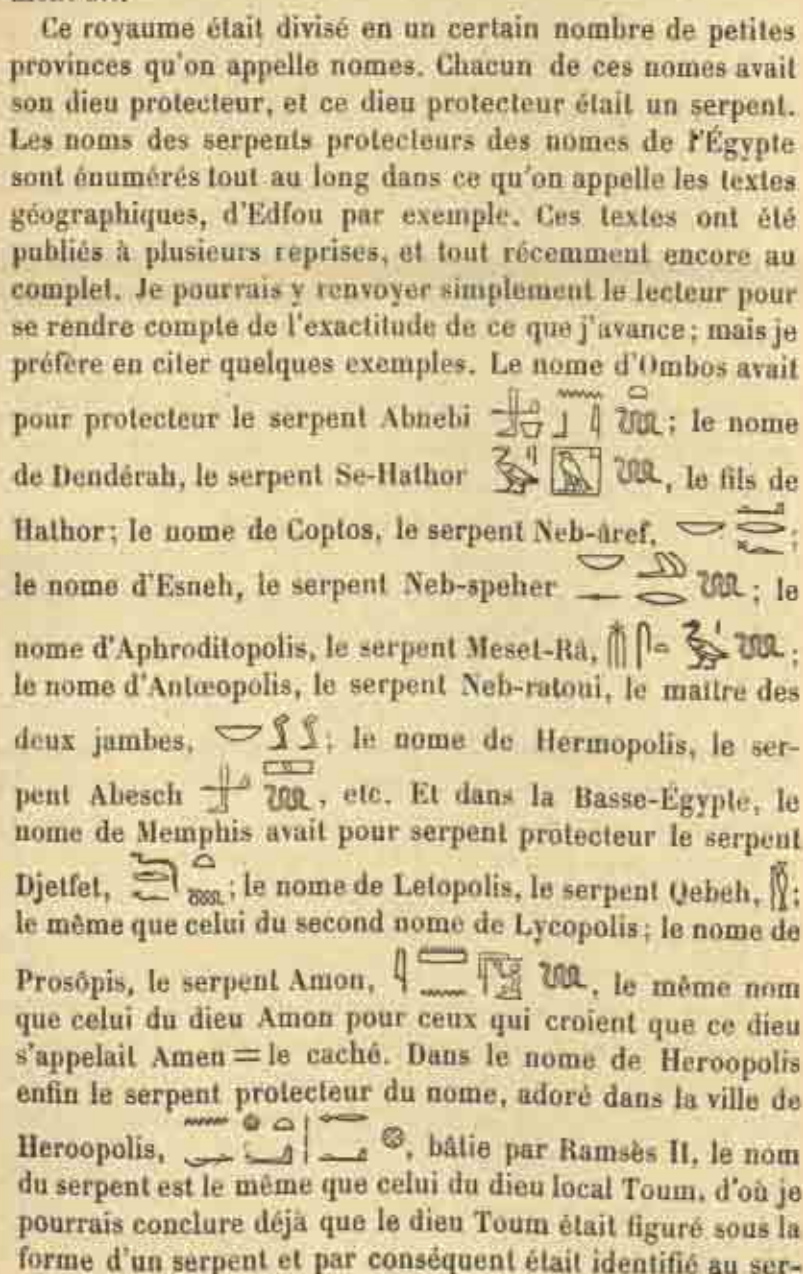 Ce royaume était divisé en un certain nombre de petites
provinces qu'on appelle nomes. Chacun de ces nomes avait
son dieu protecteur, et ce dieu protecteur était un serpent.
Les noms des serpents protecteurs des nomes de l'Égypte
sont énumérés tout au long dans ce qu'on appelle les textes
géographiques, d'Edfou par exemple. Ces textes ont été
publiés à plusieurs reprises, et tout récemment encore au
complet. Je pourrais y renvoyer simplement le lecteur pour
se rendre compte de l'exactitude de ce que j'avance; mais je
préfère en citer quelques exemples. Le nome d'Ombos avait
pour protecteur le serpent Abnebi ; le nome
de Dendérah, le serpent Se-Hathor , le fils de
Hathor; le nome de Coptos, le serpent Neb-âref, ;
le nome d'Esneh, le serpent Neb-speher ; le
nome d'Aphroditopolis, le serpent Meset-Râ, ;
le nome d'Antœopolis, le serpent Neb-ratoui, le maître des
deux jambes, ; le nome de Hermopolis, le ser-
pent Abesch , etc. Et dans la Basse-Égypte, le
nome de Memphis avait pour serpent protecteur le serpent
Djetfet, ; le nome de Letopolis, le serpent Qebeh, ;
le même que celui du second nome de Lycopolis; le nome de
Prosôpis, le serpent Amon, , le même nom
que celui du dieu Amon pour ceux qui croient que ce dieu
s'appelait Amen = le caché. Dans le nome de Heroopolis
enfin le serpent protecteur du nome, adoré dans la ville de
Heroopolis, , bâtie par Ramsès II, le nom
du serpent est le même que celui du dieu local Toum, d'où je
pourrais conclure déjà que le dieu Toum était figuré sous la
forme d'un serpent et par conséquent était identifié au ser-